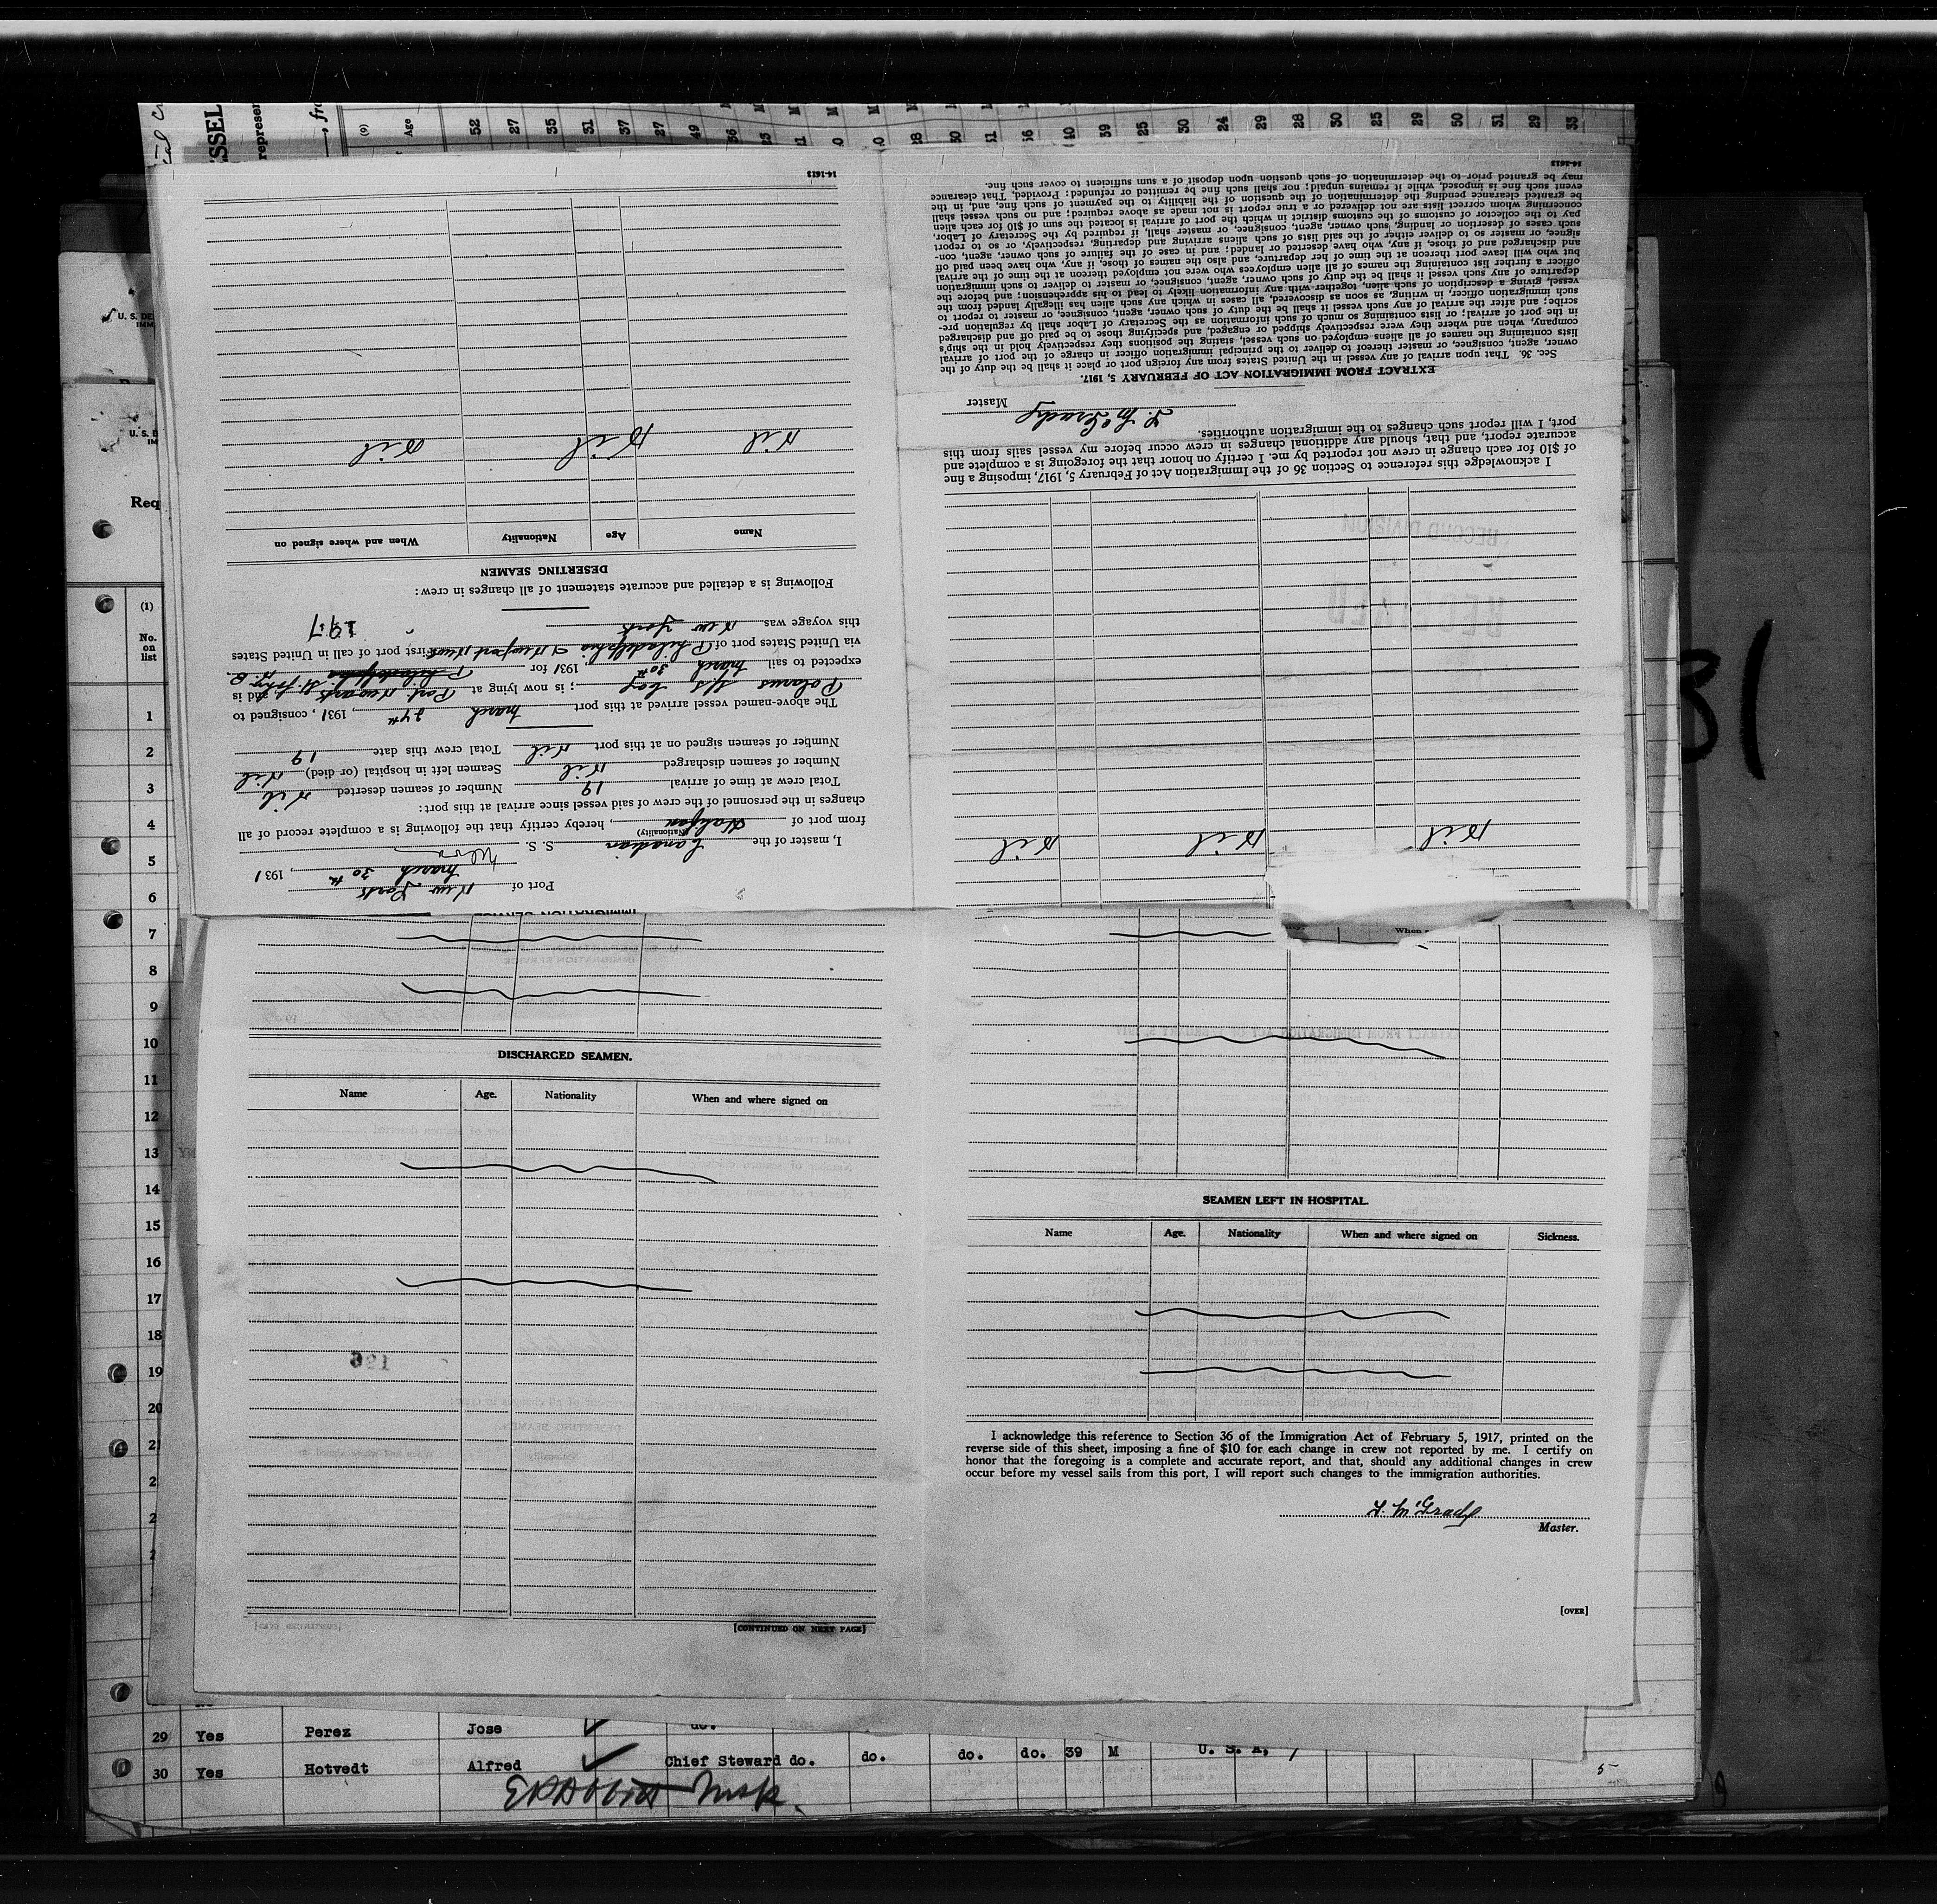 SSEL
represen
(9)
Age
52
27
35
31
37
27
49
36
39
25
30
24
29
28
30
25
29
50
31
29
33
U. S. DE
IMM
U. S. D
IM
Req
(1)
No.
on
list
1
2
3
4
5
6
7
8
9
10
11
12
13
14
15
16
17
18
19
20
Port of New York
March 30th, 1931
I, master of the Canadian S. S.
(Nationality)
from port of Halifax, hereby certify that the following is a complete record of all
changes in the personnel of the crew of said vessel since arrival at this port:
Total crew at time of arrival 19 Number of seamen deserted Nil
Number of seamen discharged Nil Seamen left in hospital (or died) Nil
Number of seamen signed on at this port Nil Total crew this date 19
The above-named vessel arrived at this port March 24th, 1931, consigned to
Polarus S/S Coy; is now lying at Port Newark and is
expected to sail March 30th, 1931 for Philadelphia
via United States port of Philadelphia & Newport News First port of call in United States
this voyage was New York
197
Following is a detailed and accurate statement of all changes in crew:
DESERTING SEAMEN
Name Age Nationality When and where signed on
Nil Nil Nil
14-1613
Nil Nil Nil
RECORD DIVISION
RECEIVED
I acknowledge this reference to Section 36 of the Immigration Act of February 5, 1917, imposing a fine
of $10 for each change in crew not reported by me. I certify on honor that the foregoing is a complete and
accurate report, and that, should any additional changes in crew occur before my vessel sails from this
port, I will report such changes to the immigration authorities.
L. McGrady Master
EXTRACT FROM IMMIGRATION ACT OF FEBRUARY 5, 1917.
Sec. 36. That upon arrival of any vessel in the United States from any foreign port or place it shall be the duty of the
owner, agent, consignee, or master thereof to deliver to the principal immigration officer in charge of the port of arrival
lists containing the names of all aliens employed on such vessel, stating the positions they respectively hold in the ship's
company, when and where they were respectively shipped or engaged, and specifying those to be paid off and discharged
in the port of arrival; or lists containing so much of such information as the Secretary of Labor shall by regulation pre-
scribe; and after the arrival of any such vessel it shall be the duty of such owner, agent, consignee, or master to report to
such immigration officer, in writing, as soon as discovered, all cases in which any such alien has illegally landed from the
vessel, giving a description of such alien, together with any information likely to lead to his apprehension; and before the
departure of any such vessel it shall be the duty of such owner, agent, consignee, or master to deliver to such immigration
officer a further list containing the names of all alien employees who were not employed thereon at the time of the arrival
but who will leave port thereon at the time of her departure, and also the names of those, if any, who have been paid off
and discharged and of those, if any, who have deserted or landed; and in case of the failure of such owner, agent, con-
signee, or master so to deliver either of the said lists of such aliens arriving and departing, respectively, or so to report
such cases of desertion or landing, such owner, agent, consignee, or master shall, if required by the Secretary of Labor,
pay to the collector of customs of the customs district in which the port of arrival is located the sum of $10 for each alien
concerning whom correct lists are not delivered or a true report is not made as above required; and no such vessel shall
be granted clearance pending the determination of the question of the liability to the payment of such fine, and, in the
event such fine is imposed, while it remains unpaid; nor shall such fine be remitted or refunded: Provided, That clearance
may be granted prior to the determination of such question upon deposit of a sum sufficient to cover such fine.
14-1613
DISCHARGED SEAMEN.
Name Age. Nationality When and where signed on
[CONTINUED ON NEXT PAGE]
SEAMEN LEFT IN HOSPITAL.
Name Age. Nationality When and where signed on Sickness.
I acknowledge this reference to Section 36 of the Immigration Act of February 5, 1917, printed on the
reverse side of this sheet, imposing a fine of $10 for each change in crew not reported by me. I certify on
honor that the foregoing is a complete and accurate report, and that, should any additional changes in crew
occur before my vessel sails from this port, I will report such changes to the immigration authorities.
L. McGrady
Master.
[OVER]
29 Yes Perez Jose do.
30 Yes Hotvedt Alfred Chief Steward do. do. do. do. 39 M U. S. A.
5